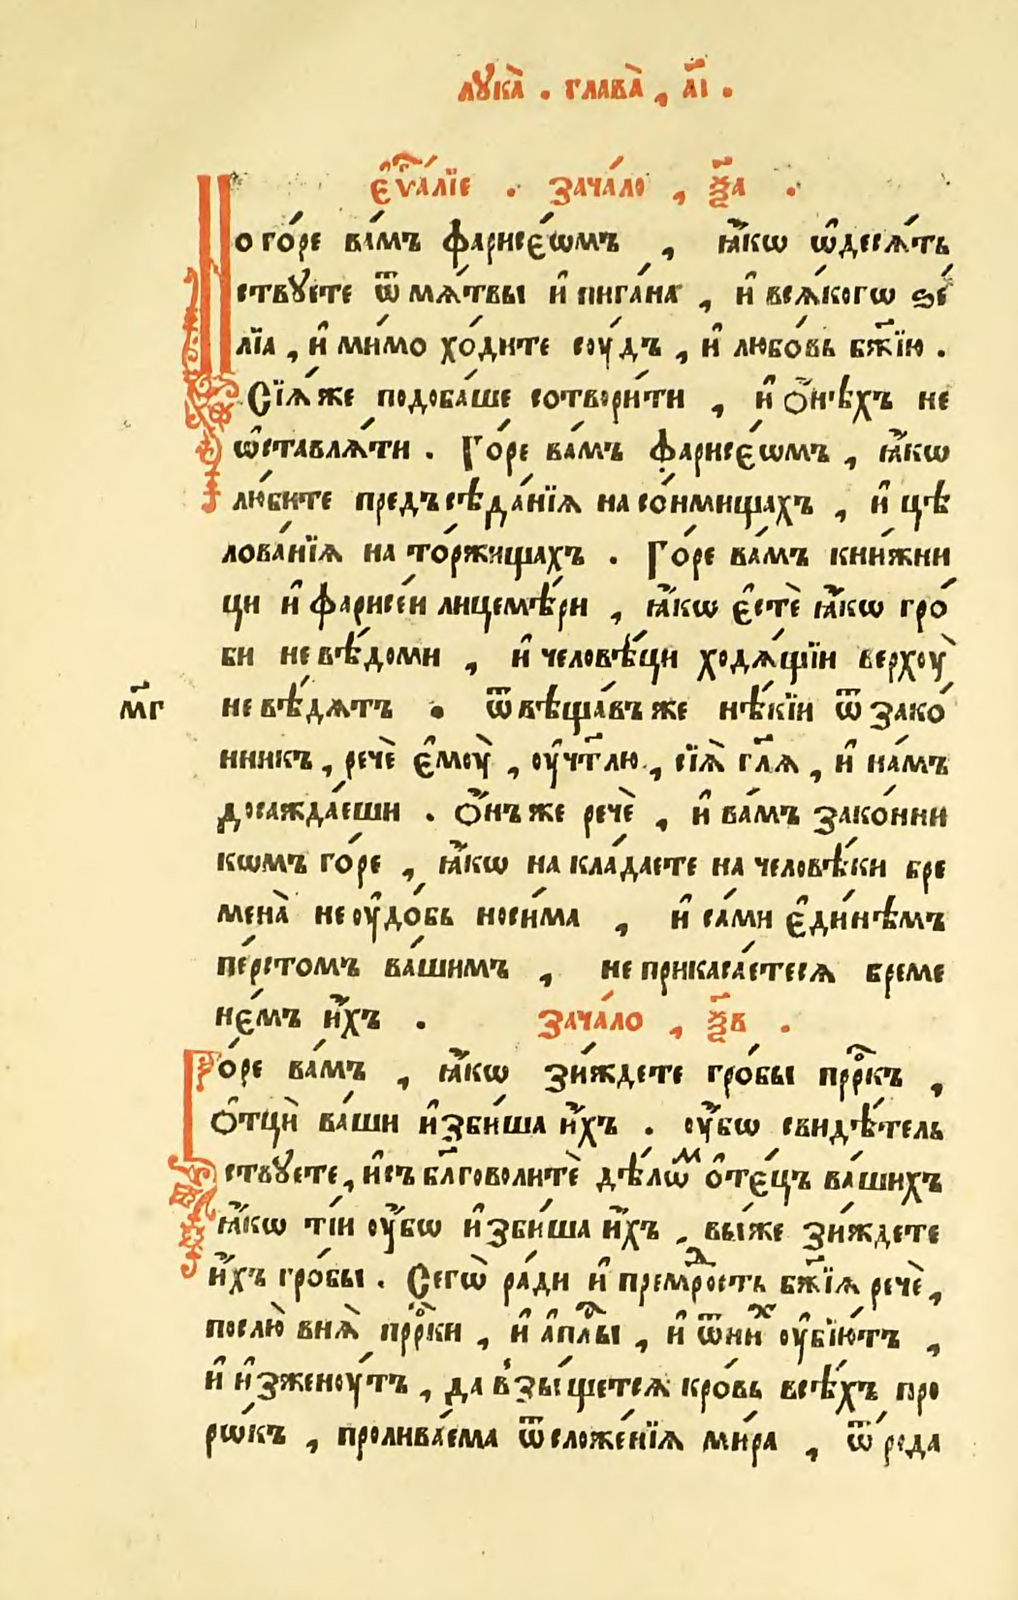 лꙋка̀ . глава̀ , а҃і .
є҆ѵⷢ҇а́лїе . зача́ло , ѯ҃а .
Но го́ре ва́мъ фарисє́ѡмъ , ꙗ҆́кѡ ѡ҆десѧ́ть
ствꙋете ѿ мѧ́твы и҆ пига́на , и҆ всѧ́когѡ ѕе́
лїа , и҆ ми́мо хо́дите соу́дъ , и҆ любо́вь бж҃їю .
Сїѧ́же подоба́ше сотвори́ти , и҆ ѻ҆́нѣхъ не
ѡ҆ставлѧ́ти . Го́ре ва́мъ фарисє́ѡмъ , ꙗ҆́кѡ
лю́бите предъсѣда́нїѧ на со́нмищахъ , и҆ цѣ
лова́нїѧ на то́ржищахъ . Го́ре ва́мъ кни́жни
цы и҆ фарисе́и лицемѣ́ри , ꙗ҆́кѡ є҆стѐ ꙗ҆́кѡ гро́
би невѣ́доми , и҆ человѣ́цы ходѧ́щїи верхоу̀
м҃г
не вѣ́дѧтъ . ѿвѣща́въ же нѣ́кїи ѿ зако́
нникъ , речѐ є҆моу̀ , оу҆чт҃лю , сїѧ̀ гл҃ѧ , и҆ на́мъ
досажда́еши . Ѻ҆́нъ же речѐ , и҆ ва́мъ зако́нни
кѡмъ го́ре , ꙗ҆́кѡ на кла́даете на человѣ́ки бре
мена̀ не оу҆до́бь носи́ма , и҆ са́ми є҆ди́нѣмъ
пе́рстомъ ва́шимъ , не прикаса́етесѧ бреме
нє́мъ и҆́хъ . зача́ло , ѯ҃в .
Го́ре ва́мъ , ꙗ҆́кѡ зи́ждете гро́бы прⷪ҇ркъ ,
ѻ҆тцы̀ ва́ши и҆збиша и҆́хъ . оу҆́бѡ свидѣ́тель
ствꙋете , и҆ съ бл҃говолитѐ дѣ́лѡⷨ ѻ҆тє́цъ ва́шихъ
ꙗ҆́кѡ ті́и оу҆́бѡ и҆зби́ша и҆́хъ , вы́же зи́ждете
и҆́хъ гро́бы . Сегѡ̀ ра́ди и҆ премⷣрость бж҃їѧ речѐ ,
послю̀ внѧ̀ прⷪ҇рки , и҆ а҆пⷭ҇лы , и҆ ѿниⷯ оу҆бїю́тъ ,
и҆ и҆зженоу́тъ , да взы́щетсѧ кро́вь всѣ́хъ про
рѡ́къ , пролива́ема ѿсложе́нїѧ ми́ра , ѿ ро́да